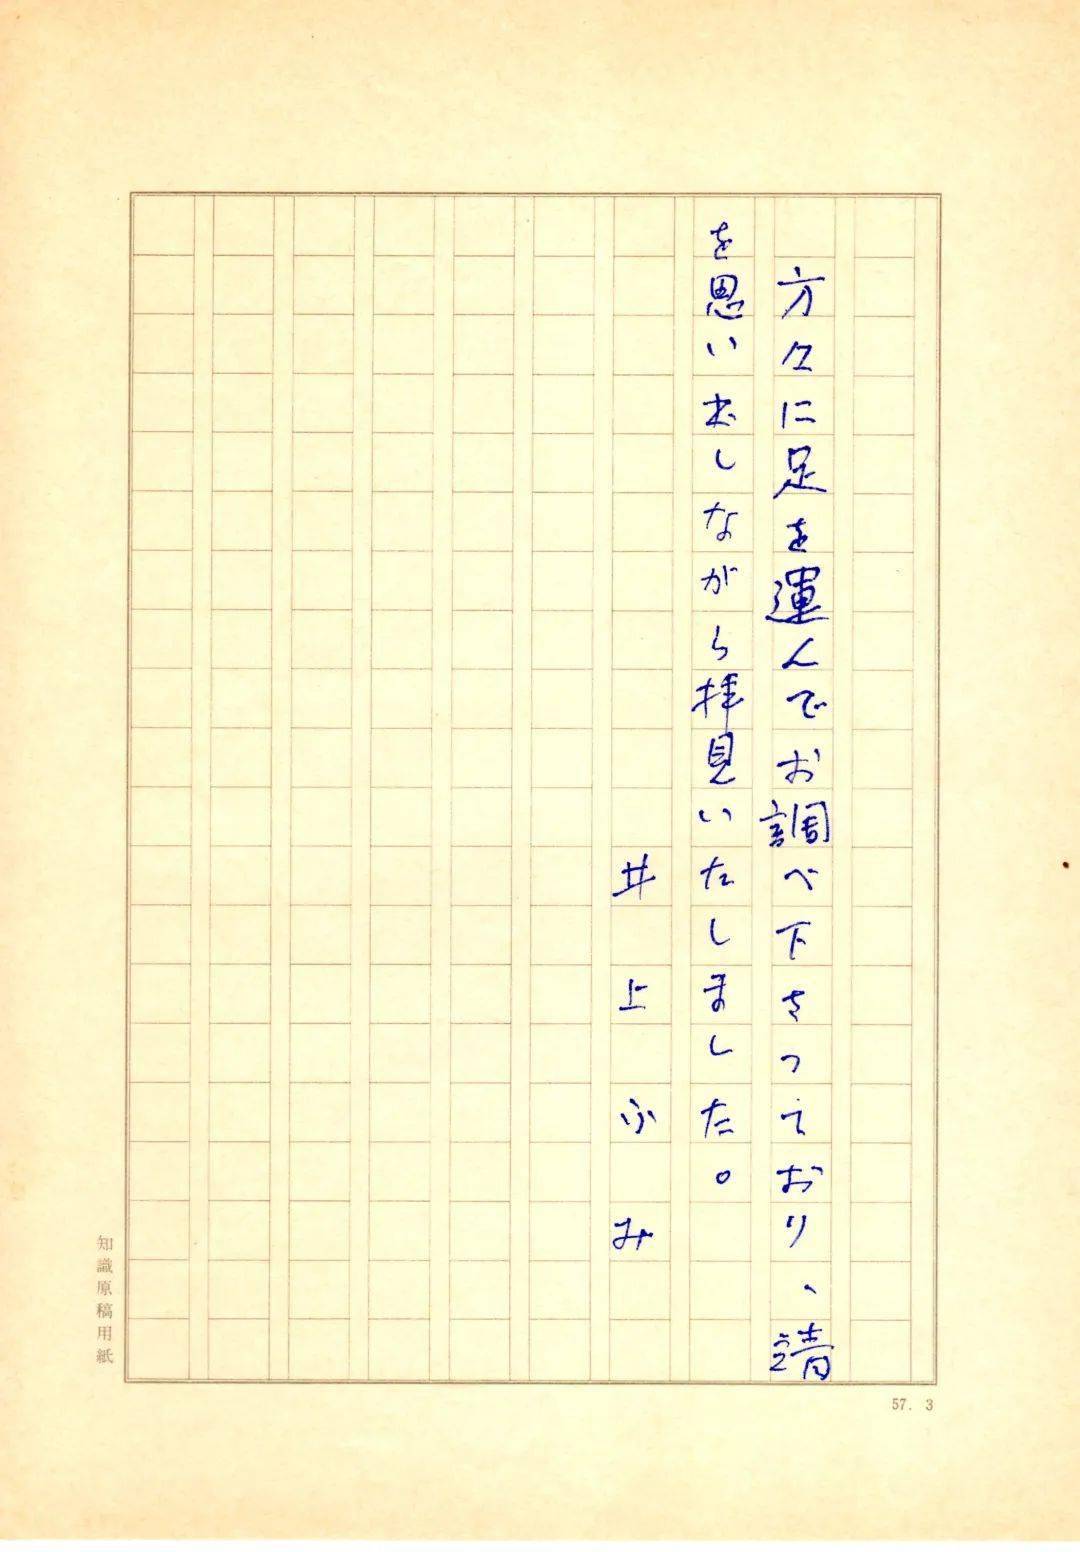 方々に足を運んでお調べ下さっており、靖
を思い出しながら拝見いたしました。
井上ふみ
知識原稿用紙
57. 3